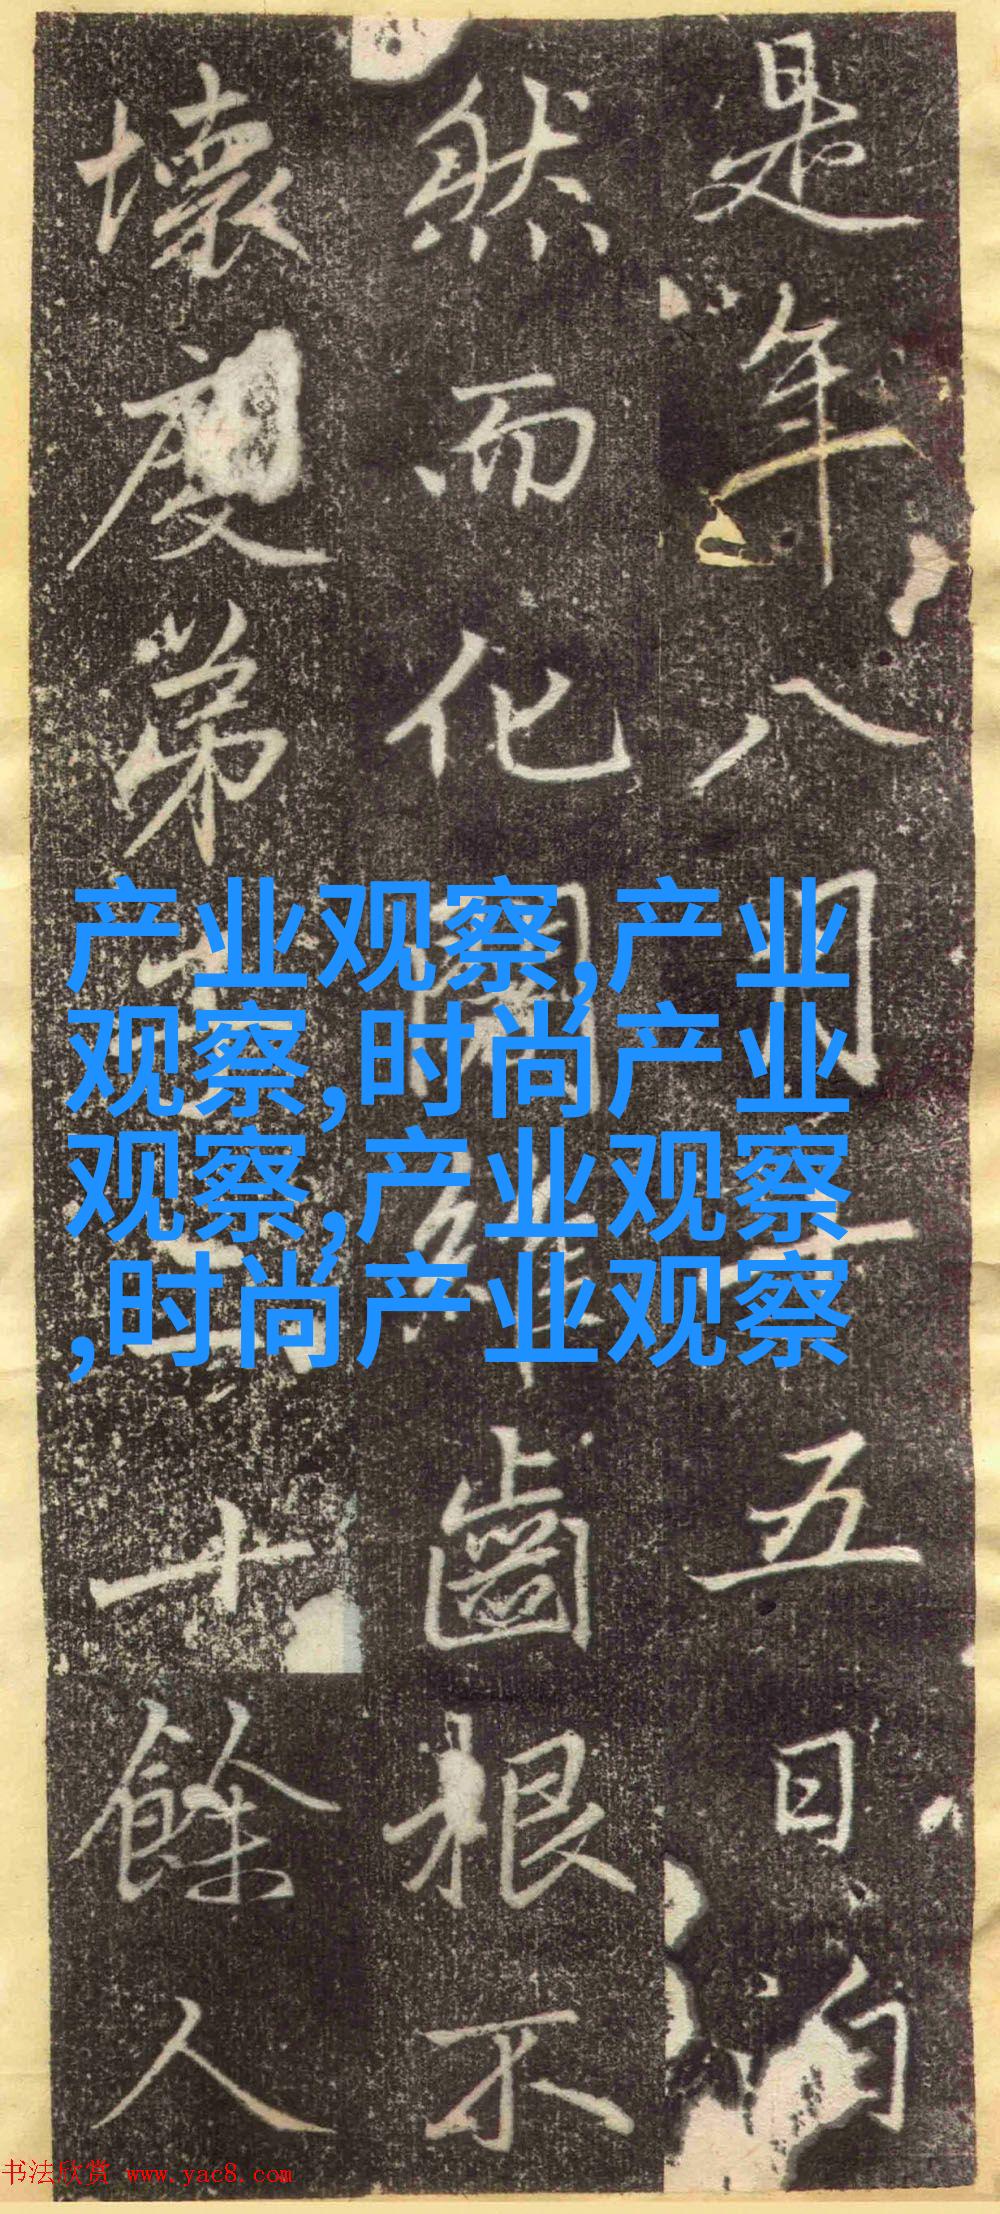 是年八月十五日泊
然而化闍維齒根不
壞度弟子三十餘人
产业观察,产业
观察,时尚产业
观察,产业观察
,时尚产业观察
书法欣赏 www.yac8.com